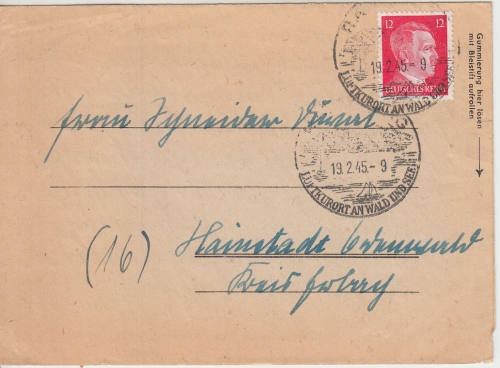 12 12
DEUTSCHES REICH
19.2.45.-9
LUFTKURORT AN WALD UND SEE
Gummierung hier lösen
mit Bleistift aufrollen
Frau Schneider Düval
19.2.45.-9
LUFTKURORT AN WALD UND SEE
(16)
Hainstadt Odenwald
Kreis Erbach